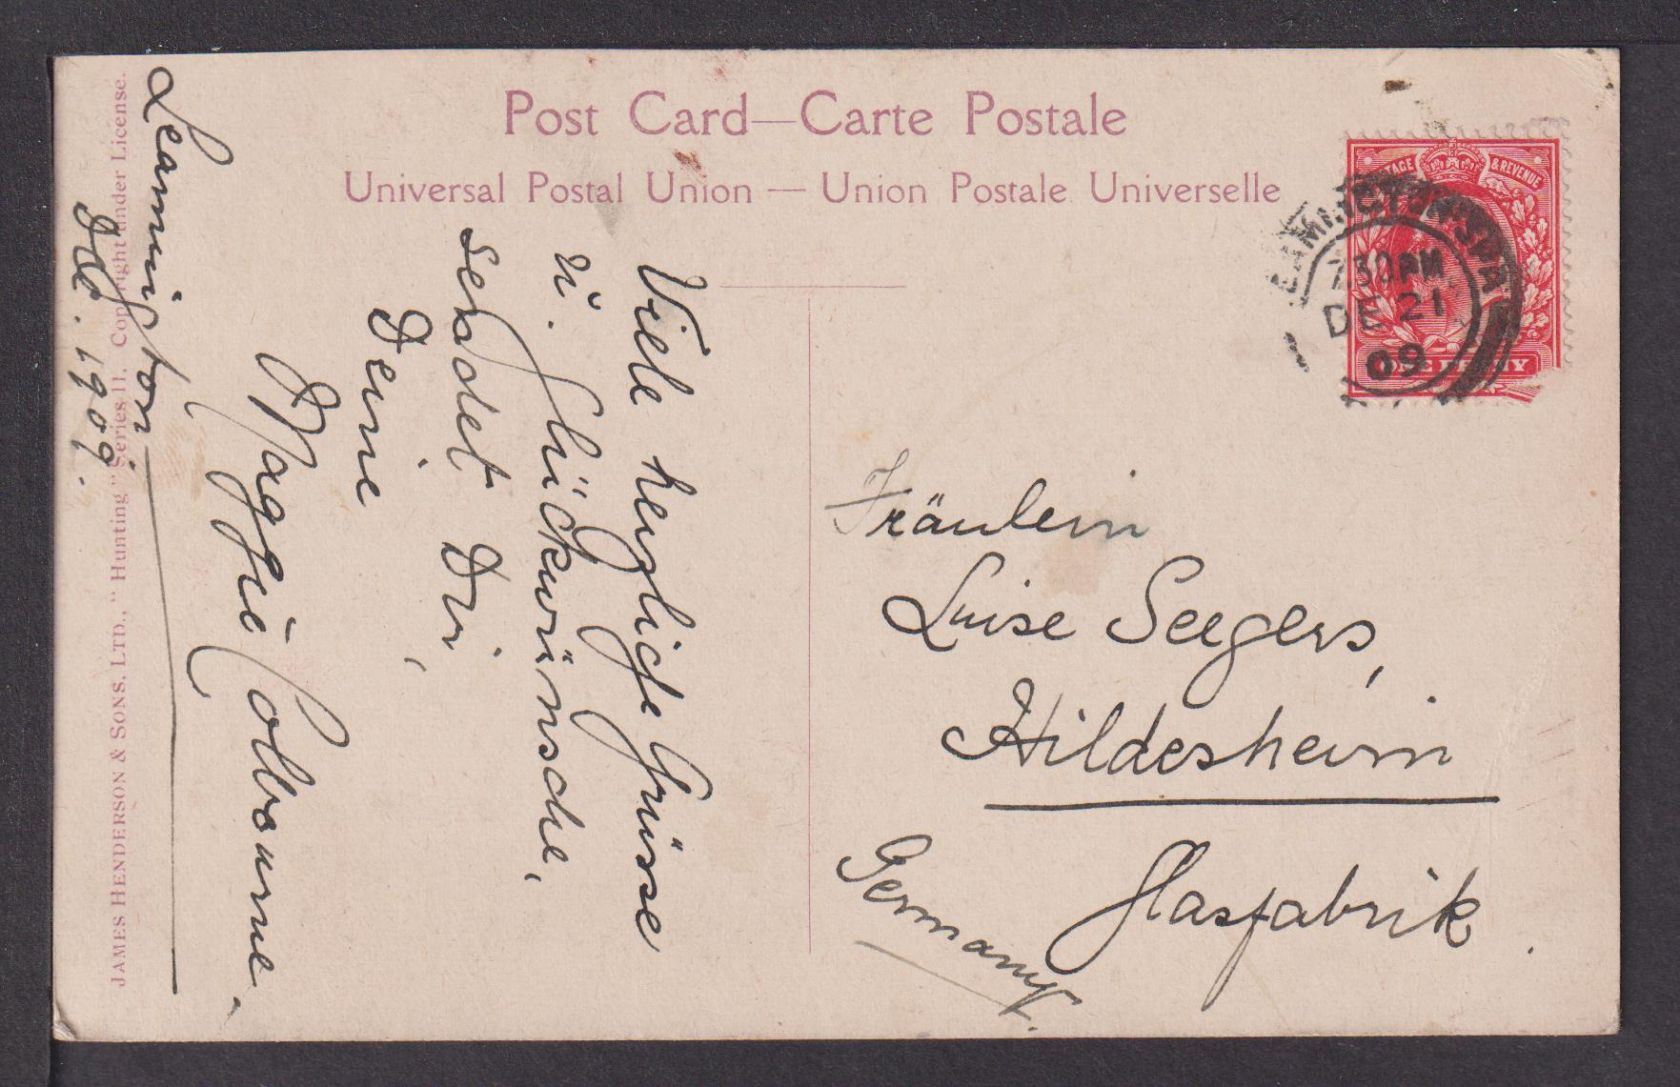 Post Card—Carte Postale
Universal Postal Union — Union Postale Universelle
JAMES HENDERSON & SONS, LTD., "Hunting" Series 11. Copyright under License.
POSTAGE & REVENUE
ONE PENNY
LEAMINGTON SPA
30 PM
DE 21
09
Leamington
Dec. 1909.
Viele herzliche Grüsse
u. Glückwünsche,
sendet Dir,
Deine
Maggie Colbourne.
Fräulein
Luise Seegers,
Hildesheim
Glasfabrik.
Germany.